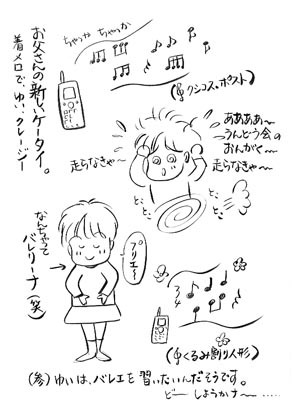 お父さんの新しいケータイ。
着メロで、ゆい、クレージー
ちゃっちゃ ちゃっちゃ
(クシコス・ポスト)
ああああ〜
うんどう会の
おんがく〜
走らなきゃ〜
走らなきゃ〜
とこ
とこ
とこ
なんちゃって
バレリーナ(笑)
プリエ〜
(くるみ割り人形)
(参)ゆいは、バレエを習いたいんだそうです。
どーしようかナ〜……